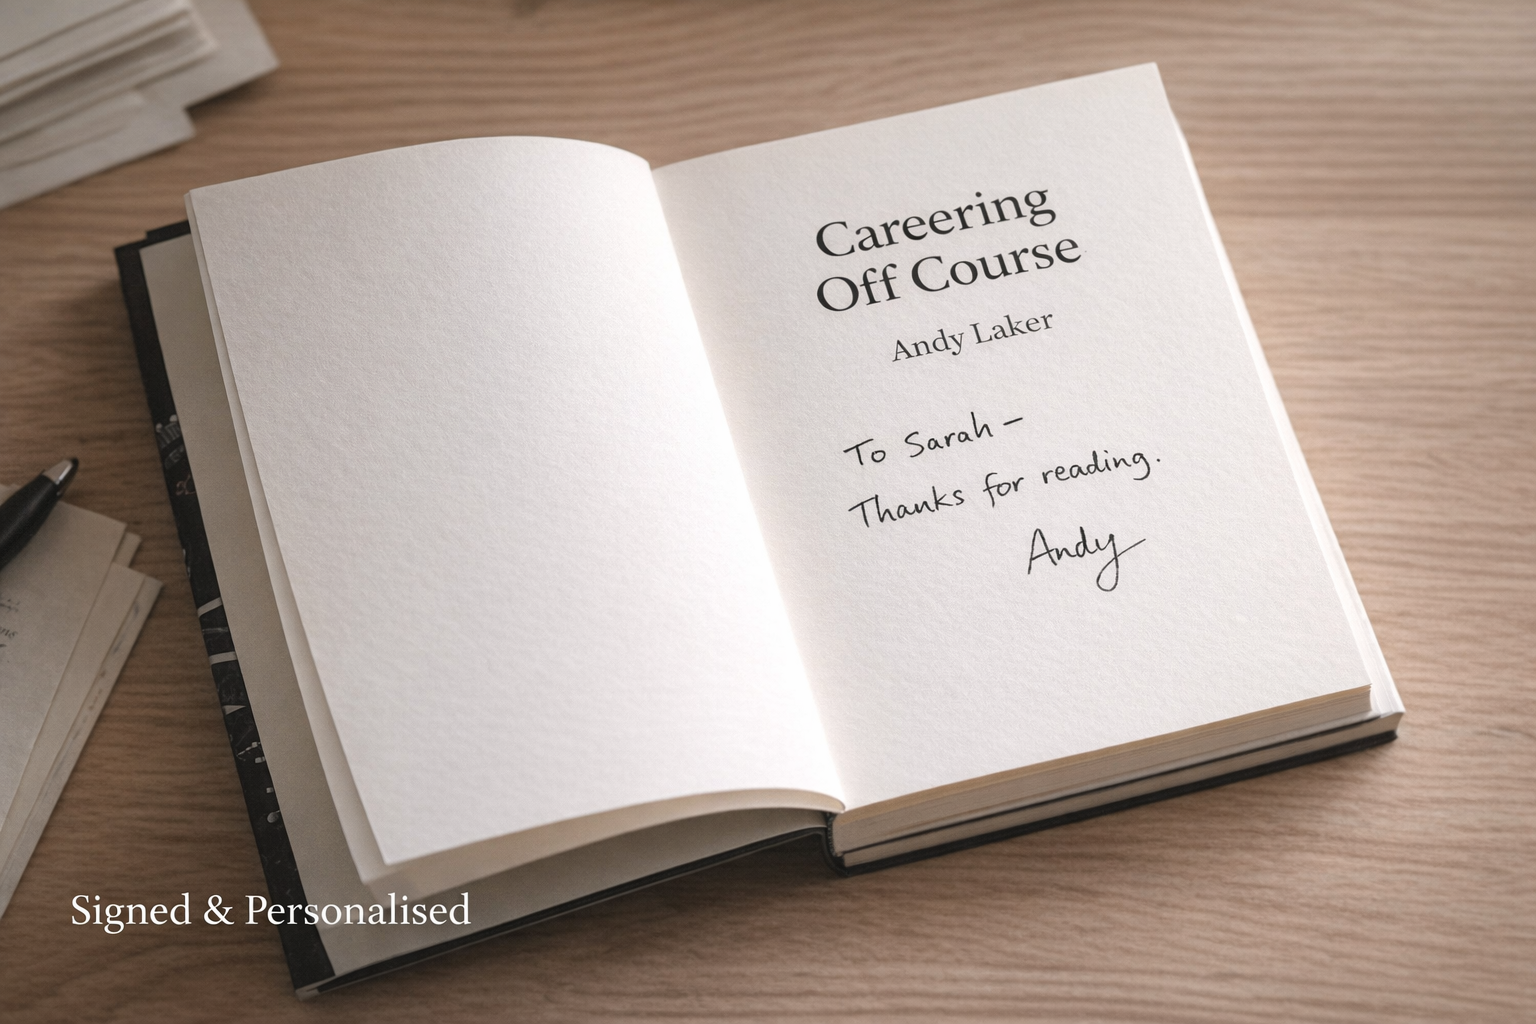 Careering
Off Course
Andy Laker
To Sarah –
Thanks for reading.
Andy
Signed & Personalised